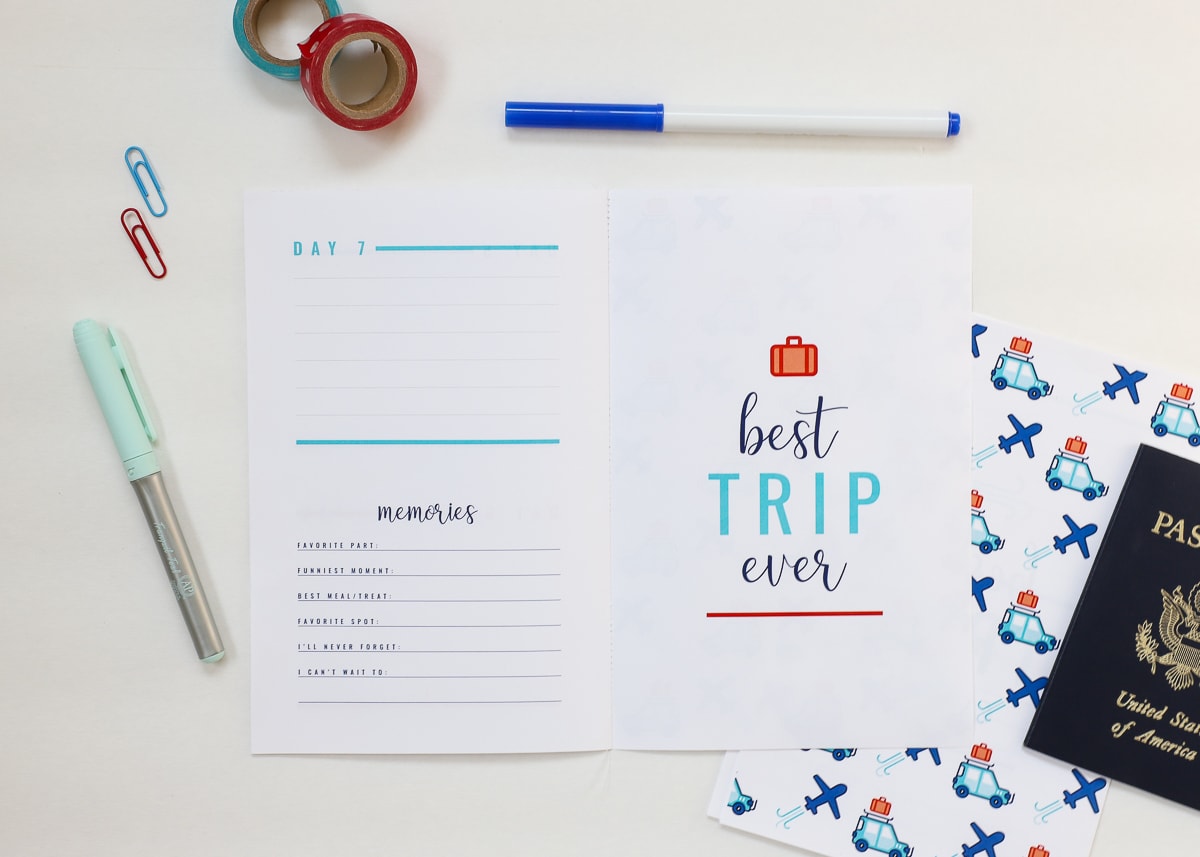 DAY 7
memories
FAVORITE PART:
FUNNIEST MOMENT:
BEST MEAL/TREAT:
FAVORITE SPOT:
I'LL NEVER FORGET:
I CAN'T WAIT TO:
best
TRIP
ever
PAS
United Stat
of America